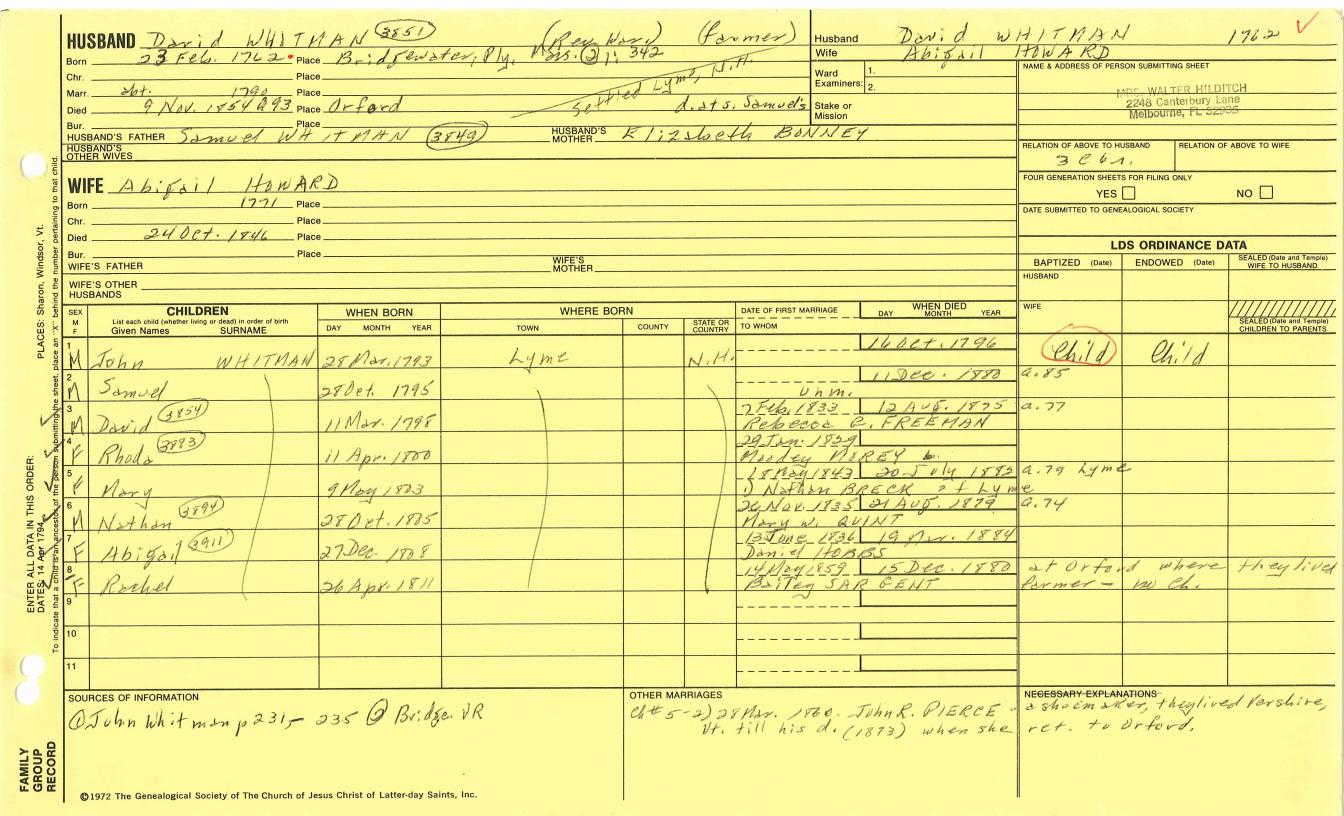 HUSBAND David WHITMAN (3851) (Rev. War) (Farmer)
Born 23 Feb. 1762 Place Bridgewater, Ply. Mass. (2): 342
Chr. Place Settled Lyme, N.H.
Marr. abt. 1790 Place
Died 9 Nov. 1854 a 93 Place Orford d. at s. Samuel's
Bur. Place
HUSBAND'S FATHER Samuel WHITMAN (3849) HUSBAND'S MOTHER Elizabeth BONNEY
HUSBAND'S OTHER WIVES
WIFE Abigail HOWARD
Born 1771 Place
Chr. Place
Died 24 Oct. 1846 Place
Bur. Place
WIFE'S FATHER WIFE'S MOTHER
WIFE'S OTHER HUSBANDS
Husband David WHITMAN 1762
Wife Abigail HOWARD
Ward Examiners: 1.
2.
Stake or Mission
NAME & ADDRESS OF PERSON SUBMITTING SHEET
MRS. WALTER HILDITCH
2248 Canterbury Lane
Melbourne, FL 32935
RELATION OF ABOVE TO HUSBAND RELATION OF ABOVE TO WIFE
FOUR GENERATION SHEETS FOR FILING ONLY
YES NO
DATE SUBMITTED TO GENEALOGICAL SOCIETY
LDS ORDINANCE DATA
BAPTIZED (Date) ENDOWED (Date) SEALED (Date and Temple) WIFE TO HUSBAND
HUSBAND
WIFE
SEALED (Date and Temple) CHILDREN TO PARENTS
SEX M F CHILDREN WHEN BORN WHERE BORN DATE OF FIRST MARRIAGE WHEN DIED
List each child (whether living or dead) in order of birth
Given Names SURNAME DAY MONTH YEAR TOWN COUNTY STATE OR COUNTRY TO WHOM DAY MONTH YEAR
1 16 Oct. 1796
M John WHITMAN 28 Mar. 1793 Lyme N.H. Child Child
2 11 Dec. 1880 a. 85
M Samuel 28 Oct. 1795 unm.
3 7 Feb. 1833 12 Aug. 1875 a. 77
M David (3854) 11 Mar. 1798 Rebecca C. FREEMAN
4 29 Jan. 1829
F Rhoda (3893) 11 Apr. 1800 Moodey MOREY
5 18 May 1843 20 July 1882 a. 79 Lyme
F Mary 9 May 1803 1) Nathan BRECK of Lyme
6 26 Nov. 1835 21 Aug. 1879 a. 74
M Nathan (3894) 28 Oct. 1805 Mary W. QUINT
7 13 June 1836 19 Mar. 1884
F Abigail (3911) 27 Dec. 1808 Daniel HOBBS
8 14 May 1859 15 Dec. 1880 at Orford where they lived
F Rachel 26 Apr. 1811 Bailey SARGENT farmer - no Ch.
9
10
11
SOURCES OF INFORMATION
(1) John Whitman p 231, - 235 (2) Bridge. VR
OTHER MARRIAGES
Ch # 5 - 2) 28 Mar. 1860. John R. PIERCE -
Vt. till his d. (1873) when she
NECESSARY EXPLANATIONS
a shoemaker, they lived Vershire,
ret. to Orford.
©1972 The Genealogical Society of The Church of Jesus Christ of Latter-day Saints, Inc.
FAMILY GROUP RECORD
ENTER ALL DATA IN THIS ORDER: PLACES: Sharon, Windsor, Vt.
DATES: 14 Apr 1794
To indicate that a child is an ancestor of the person submitting the sheet, place an "X" behind the number pertaining to that child.